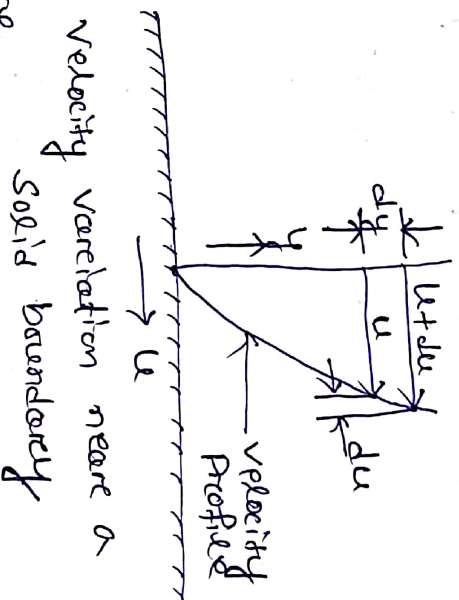 u+du
dy
u
du
y
velocity
Profile
u
velocity vareiation neare a
Solid boundarey